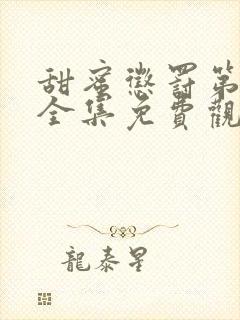 甜蜜懲罰第
全集免費觀
龍泰星